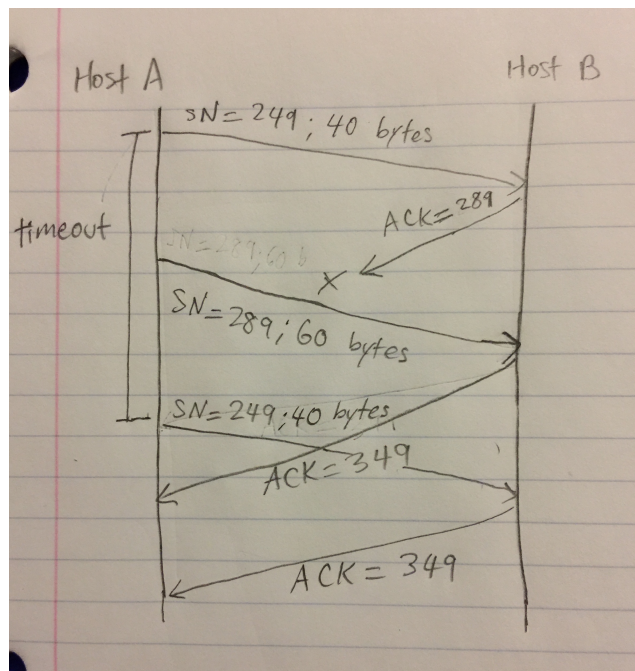 Host A
Host B
SN=249; 40 bytes
ACK=289
timeout
SN=289;60 b
X
SN=289; 60 bytes
SN=249;40 bytes
ACK=349
ACK=349